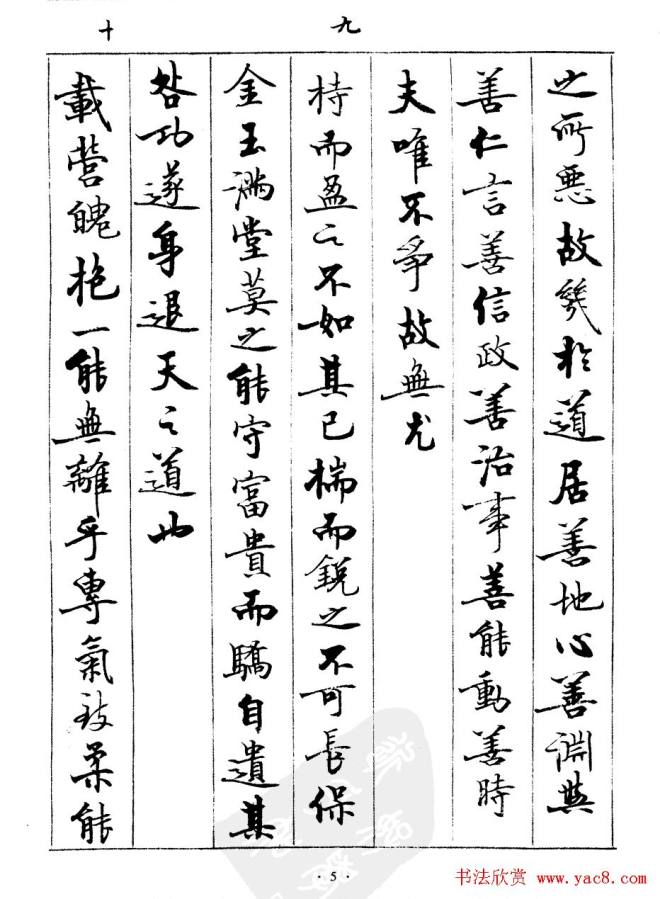 之所惡故幾於道居善地心善淵與
善仁言善信政善治事善能動善時
夫唯不爭故無尤
九
持而盈之不如其已揣而銳之不可長保
金玉滿堂莫之能守富貴而驕自遺其
咎功遂身退天之道也
十
載營魄抱一能無離乎專氣致柔能
·5·
书法欣赏 www.yac8.com